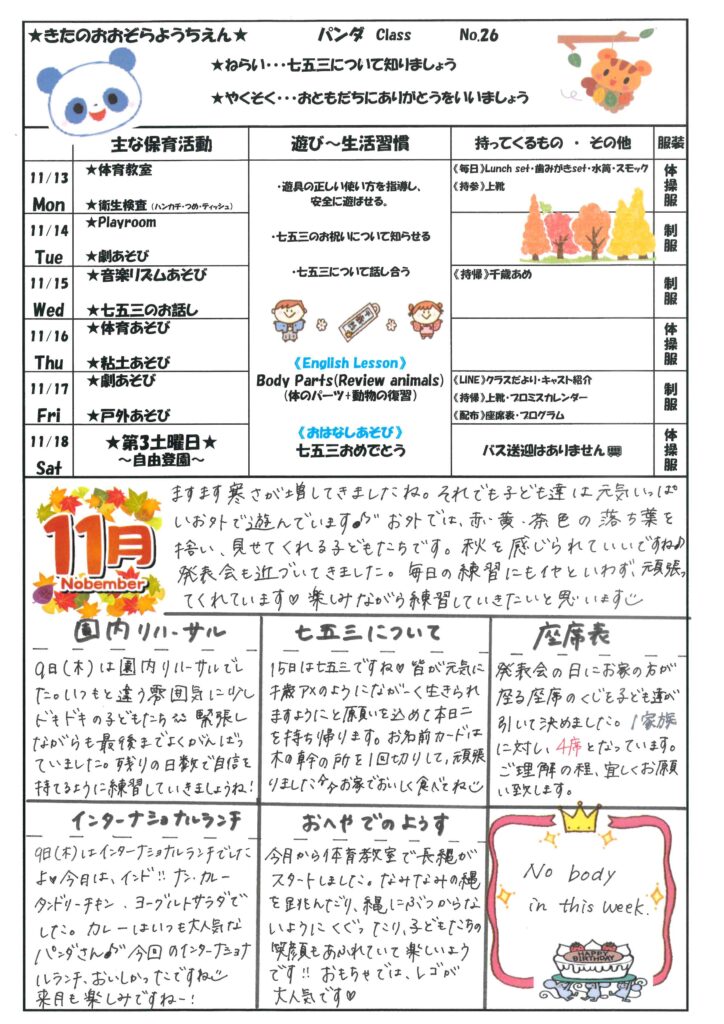 ★きたのおおぞらようちえん★ パンダ Class No.26
★ねらい・・・七五三について知りましょう
★やくそく・・・おともだちにありがとうをいいましょう
主な保育活動 遊び～生活習慣 持ってくるもの ・ その他 服装
11/13 Mon
★体育教室
★衛生検査（ハンカチ・つめ・ティッシュ）
《毎日》Lunch set・歯みがきset・水筒・スモック
《持参》上靴
体操服
11/14 Tue
★Playroom
★劇あそび
制服
11/15 Wed
★音楽リズムあそび
★七五三のお話し
《持帰》千歳あめ
制服
11/16 Thu
★体育あそび
★粘土あそび
体操服
11/17 Fri
★劇あそび
★戸外あそび
《LINE》クラスだより・キャスト紹介
《持帰》上靴・プロミスカレンダー
《配布》座席表・プログラム
制服
11/18 Sat
★第3土曜日★
～自由登園～
バス送迎はありません
体操服
・遊具の正しい使い方を指導し、
安全に遊ばせる。
・七五三のお祝いについて知らせる
・七五三について話し合う
千歳飴
《English Lesson》
Body Parts(Review animals)
(体のパーツ+動物の復習)
《おはなしあそび》
七五三おめでとう
11月
Nobember
ますます寒さが増してきましたね。それでも子ども達は元気いっぱ
いお外で遊んでいます♪ お外では、赤・黄・茶色の落ち葉を
拾い、見せてくれる子どもたちです。秋を感じられていいですね♪
発表会も近づいてきました。毎日の練習にもイヤといわず、頑張っ
てくれています♡ 楽しみながら練習していきたいと思います
園内リハーサル
9日(木)は園内リハーサルでし
た。いつもと違う雰囲気に少し
ドキドキの子どもたち 緊張し
ながらも最後までよくがんばっ
ていました。残りの日数で自信を
持てるように練習していきましょうね!
七五三について
15日は七五三ですね♡ 皆が元気に
千歳アメのようになが～く生きられ
ますようにと願いを込めて本日
を持ち帰ります。お名前カードは
木の幹の所を1回切りして、頑張
りました お家でおいしく食べてね
座席表
発表会の日にお家の方が
座る座席のくじを子ども達が
引いて決めました。1家族
に対し、4席となっています。
ご理解の程、宜しくお願
い致します。
インターナショナルランチ
9日(木)はインターナショナルランチでした
よ♡今日は、インド!! ナン・カレー
タンドリーチキン、ヨーグルトサラダで
した。カレーはいつも大人気な
パンダさん♪ 今回のインターナショナ
ルランチ、おいしかったですね
来月も楽しみですねー!
おへやでのようす
今月から体育教室で長縄が
スタートしました。なみなみの縄
を跳んだり、縄にぶつからな
いようにくぐったり、子どもたちの
笑顔もあふれていて楽しいよう
です!! おもちゃでは、レゴが
大人気です♡
No body
in this week.
HAPPY
BIRTHDAY